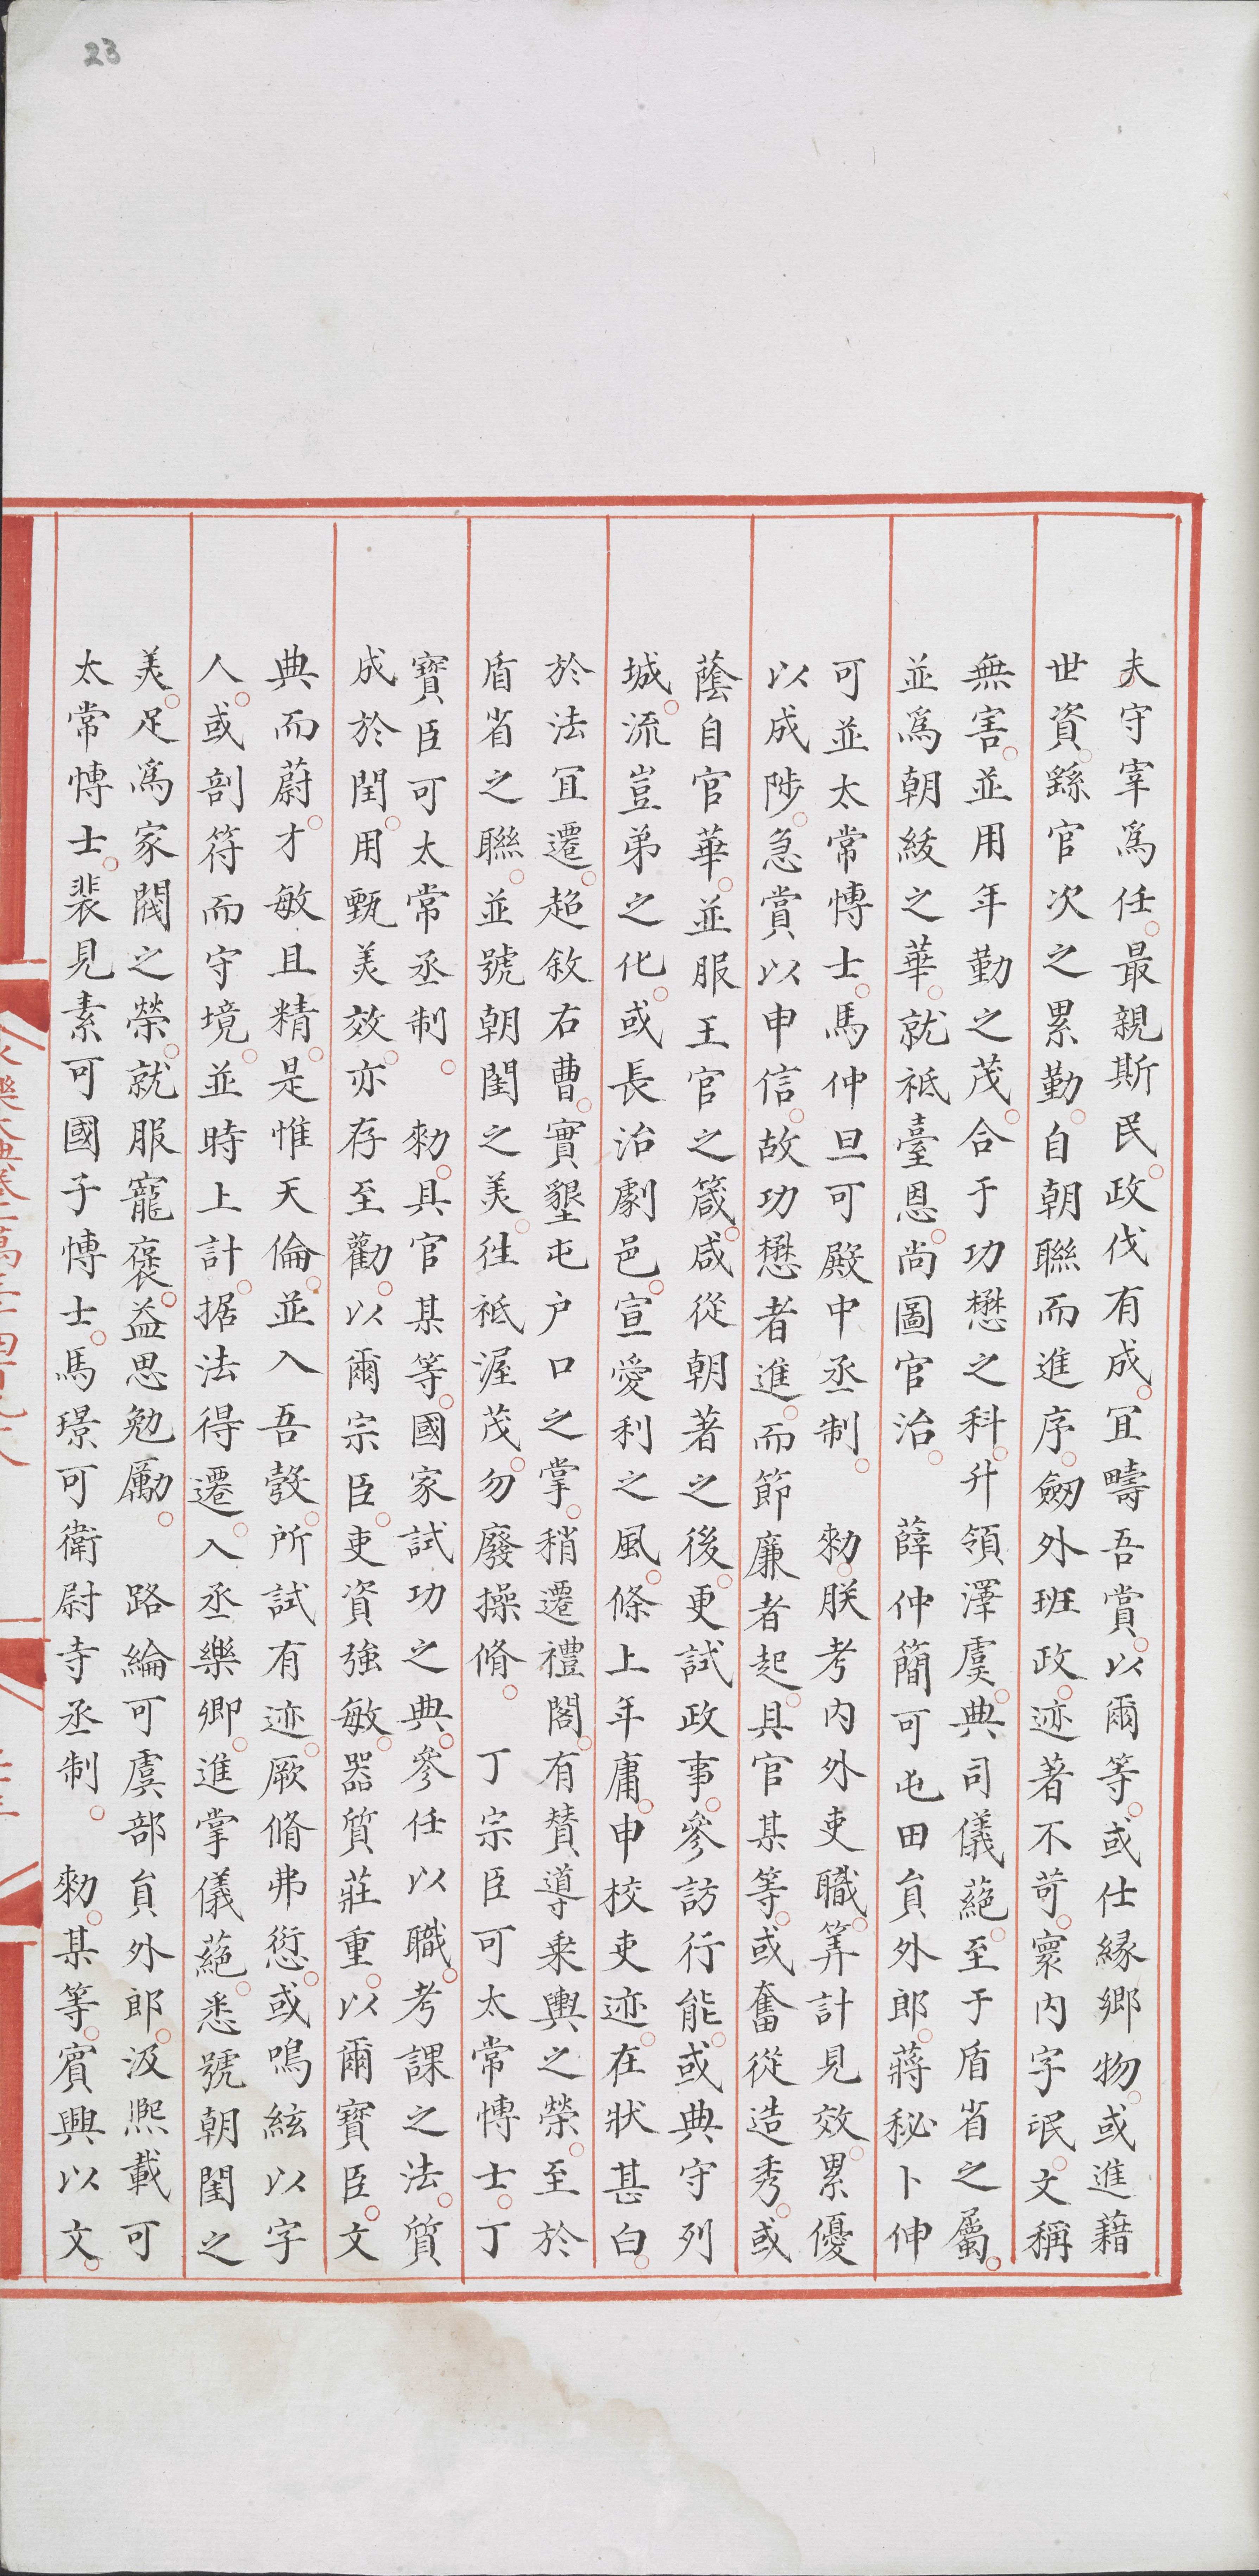 23
夫守宰爲任。最親斯民。政伐有成。冝疇吾賞。以爾等。或仕縁鄉物。或進藉
世資。繇官次之累勤。自朝聯而進序。劒外班政。迹著不苛。寰内字氓。文稱
無害。並用年勤之茂。合于功懋之科。升領澤虞。典司儀蕝。至于盾省之屬。
並爲朝綾之華。就祗臺恩。尚圖官治。 薛仲簡可屯田貟外郎。蔣秘卜伸
可並太常愽士。馬仲旦可殿中丞制。 勑。朕考内外吏職。筭計見效。累優
以成陟。急賞以申信。故功懋者進。而節廉者起。具官某等。或奮從造秀。或
蔭自官華。並服王官之箴。咸從朝著之後。更試政事。參訪行能。或典守列
城。流豈弟之化。或長治劇邑。宣愛利之風。條上年庸。申校吏迹。在狀甚白。
於法冝遷。超敘右曹。實墾屯户口之掌。稍遷禮閣。有賛導乗輿之榮。至於
盾省之聯。並號朝閨之美。往祗渥茂。勿廢操脩。 丁宗臣可太常愽士。丁
寳臣可太常丞制。 勑。具官某等。國家試功之典。參任以職。考課之法。質
成於閏。用甄美效。亦存至勸。以爾宗臣。吏資強敏。器質莊重。以爾寳臣。文
典而蔚。才敏且精。是惟天倫。並入吾彀。所試有迹。厥脩弗愆。或鳴絃以字
人。或剖符而守境。並時上計。据法得遷。入丞樂卿。進掌儀蕝。悉號朝閨之
美。足爲家閥之榮。就服寵褒。益思勉勵。 路綸可虞部貟外郎。汲熈載可
太常愽士。裴見素可國子愽士。馬璟可衛尉寺丞制。 勑。某等。賓興以文。